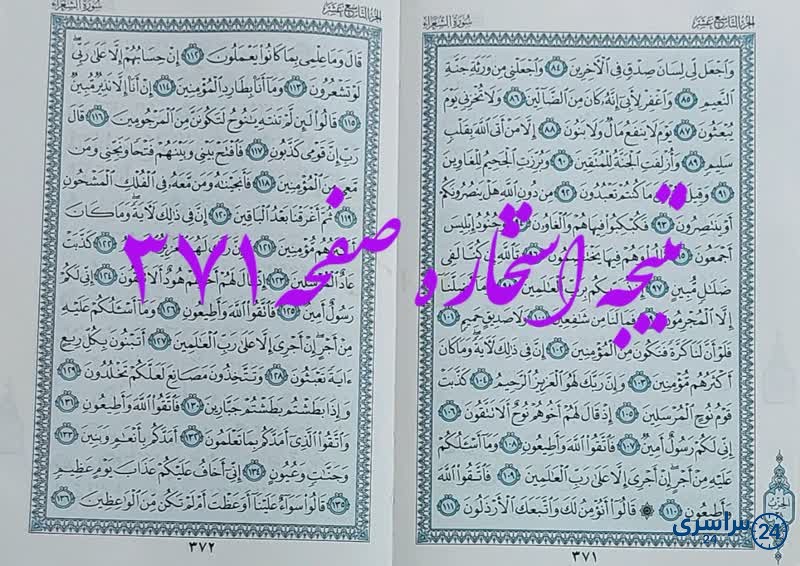 الجزء التاسع عشر
سورة الشعراء
وَٱجْعَل لِّى لِسَانَ صِدْقٍ فِى ٱلْءَاخِرِينَ ٨٤ وَٱجْعَلْنِى مِن وَرَثَةِ جَنَّةِ
ٱلنَّعِيمِ ٨٥ وَٱغْفِرْ لِأَبِىٓ إِنَّهُۥ كَانَ مِنَ ٱلضَّآلِّينَ ٨٦ وَلَا تُخْزِنِى يَوْمَ
يُبْعَثُونَ ٨٧ يَوْمَ لَا يَنفَعُ مَالٌ وَلَا بَنُونَ ٨٨ إِلَّا مَنْ أَتَى ٱللَّهَ بِقَلْبٍ
سَلِيمٍ ٨٩ وَأُزْلِفَتِ ٱلْجَنَّةُ لِلْمُتَّقِينَ ٩٠ وَبُرِّزَتِ ٱلْجَحِيمُ لِلْغَاوِينَ
٩١ وَقِيلَ مَا كُنتُمْ تَعْبُدُونَ ٩٢ مِن دُونِ ٱللَّهِ هَلْ يَنصُرُونَكُمْ
أَوْ يَنتَصِرُونَ ٩٣ فَكُبْكِبُوا۟ فِيهَا هُمْ وَٱلْغَاوُۥنَ وَجُنُودُ إِبْلِيسَ
أَجْمَعُونَ قَالُوا۟ وَهُمْ فِيهَا يَخْتَصِمُونَ تَٱللَّهِ إِن كُنَّا لَفِى
ضَلَٰلٍ مُّبِينٍ ٩٧ نُسَوِّيكُم بِرَبِّ ٱلْعَٰلَمِينَ وَمَآ أَضَلَّنَآ
إِلَّا ٱلْمُجْرِمُونَ فَمَا لَنَا مِن شَٰفِعِينَ ١٠٠ وَلَا صَدِيقٍ حَمِيمٍ ١٠١
فَلَوْ أَنَّ لَنَا كَرَّةً فَنَكُونَ مِنَ ٱلْمُؤْمِنِينَ ١٠٢ إِنَّ فِى ذَٰلِكَ لَءَايَةً وَمَا كَانَ
أَكْثَرُهُم مُّؤْمِنِينَ ١٠٣ وَإِنَّ رَبَّكَ لَهُوَ ٱلْعَزِيزُ ٱلرَّحِيمُ ١٠٤ كَذَّبَتْ
قَوْمُ نُوحٍ ٱلْمُرْسَلِينَ ١٠٥ إِذْ قَالَ لَهُمْ أَخُوهُمْ نُوحٌ أَلَا تَتَّقُونَ ١٠٦
إِنِّى لَكُمْ رَسُولٌ أَمِينٌ ١٠٧ فَٱتَّقُوا۟ ٱللَّهَ وَأَطِيعُونِ ١٠٨ وَمَآ أَسْـَٔلُكُمْ
عَلَيْهِ مِنْ أَجْرٍ إِنْ أَجْرِىَ إِلَّا عَلَىٰ رَبِّ ٱلْعَٰلَمِينَ ١٠٩ فَٱتَّقُوا۟ ٱللَّهَ
وَأَطِيعُونِ ١١٠ قَالُوٓا۟ أَنُؤْمِنُ لَكَ وَٱتَّبَعَكَ ٱلْأَرْذَلُونَ ١١١
٣٧١
الجزء التاسع عشر
سورة الشعراء
قَالَ وَمَا عِلْمِى بِمَا كَانُوا۟ يَعْمَلُونَ ١١٢ إِنْ حِسَابُهُمْ إِلَّا عَلَىٰ رَبِّى
لَوْ تَشْعُرُونَ ١١٣ وَمَآ أَنَا۠ بِطَارِدِ ٱلْمُؤْمِنِينَ ١١٤ إِنْ أَنَا۠ إِلَّا نَذِيرٌ مُّبِينٌ
١١٥ قَالُوا۟ لَئِن لَّمْ تَنتَهِ يَٰنُوحُ لَتَكُونَنَّ مِنَ ٱلْمَرْجُومِينَ ١١٦ قَالَ
رَبِّ إِنَّ قَوْمِى كَذَّبُونِ ١١٧ فَٱفْتَحْ بَيْنِى وَبَيْنَهُمْ فَتْحًا وَنَجِّنِى وَمَن
مَّعِىَ مِنَ ٱلْمُؤْمِنِينَ ١١٨ فَأَنجَيْنَٰهُ وَمَن مَّعَهُۥ فِى ٱلْفُلْكِ ٱلْمَشْحُونِ
١١٩ ثُمَّ أَغْرَقْنَا بَعْدُ ٱلْبَاقِينَ ١٢٠ إِنَّ فِى ذَٰلِكَ لَءَايَةً وَمَا كَانَ
أَكْثَرُهُم مُّؤْمِنِينَ ١٢١ وَإِنَّ رَبَّكَ لَهُوَ ٱلْعَزِيزُ ١٢٢ كَذَّبَتْ
عَادٌ ٱلْمُرْسَلِينَ ١٢٣ إِذْ قَالَ لَهُمْ أَخُوهُمْ هُودٌ أَلَا تَتَّقُونَ ١٢٤ إِنِّى لَكُمْ
رَسُولٌ أَمِينٌ ١٢٥ فَٱتَّقُوا۟ ٱللَّهَ وَأَطِيعُونِ ١٢٦ وَمَآ أَسْـَٔلُكُمْ عَلَيْهِ
مِنْ أَجْرٍ إِنْ أَجْرِىَ إِلَّا عَلَىٰ رَبِّ ٱلْعَٰلَمِينَ ١٢٧ أَتَبْنُونَ بِكُلِّ رِيعٍ
ءَايَةً تَعْبَثُونَ ١٢٨ وَتَتَّخِذُونَ مَصَانِعَ لَعَلَّكُمْ تَخْلُدُونَ ١٢٩
وَإِذَا بَطَشْتُم بَطَشْتُمْ جَبَّارِينَ ١٣٠ فَٱتَّقُوا۟ ٱللَّهَ وَأَطِيعُونِ ١٣١
وَٱتَّقُوا۟ ٱلَّذِىٓ أَمَدَّكُم بِمَا تَعْلَمُونَ ١٣٢ أَمَدَّكُم بِأَنْعَٰمٍ وَبَنِينَ ١٣٣
وَجَنَّٰتٍ وَعُيُونٍ ١٣٤ إِنِّىٓ أَخَافُ عَلَيْكُمْ عَذَابَ يَوْمٍ عَظِيمٍ
١٣٥ قَالُوا۟ سَوَآءٌ عَلَيْنَآ أَوَعَظْتَ أَمْ لَمْ تَكُن مِّنَ ٱلْوَٰعِظِينَ ١٣٦
٣٧٢
نتیجه استخاره صفحه ۳۷۱
سراسری 24
24